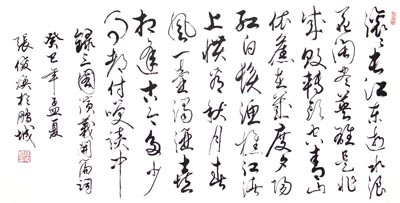 滚々长江东逝水浪
花淘尽英雄是非
成败转头空青山
依旧在几度夕阳
红白发渔樵江渚
上惯看秋月春
风一壶浊酒喜
相逢古今多少
事都付笑谈中
録三国演義開篇词
癸巳年孟夏
張俊於鹏城